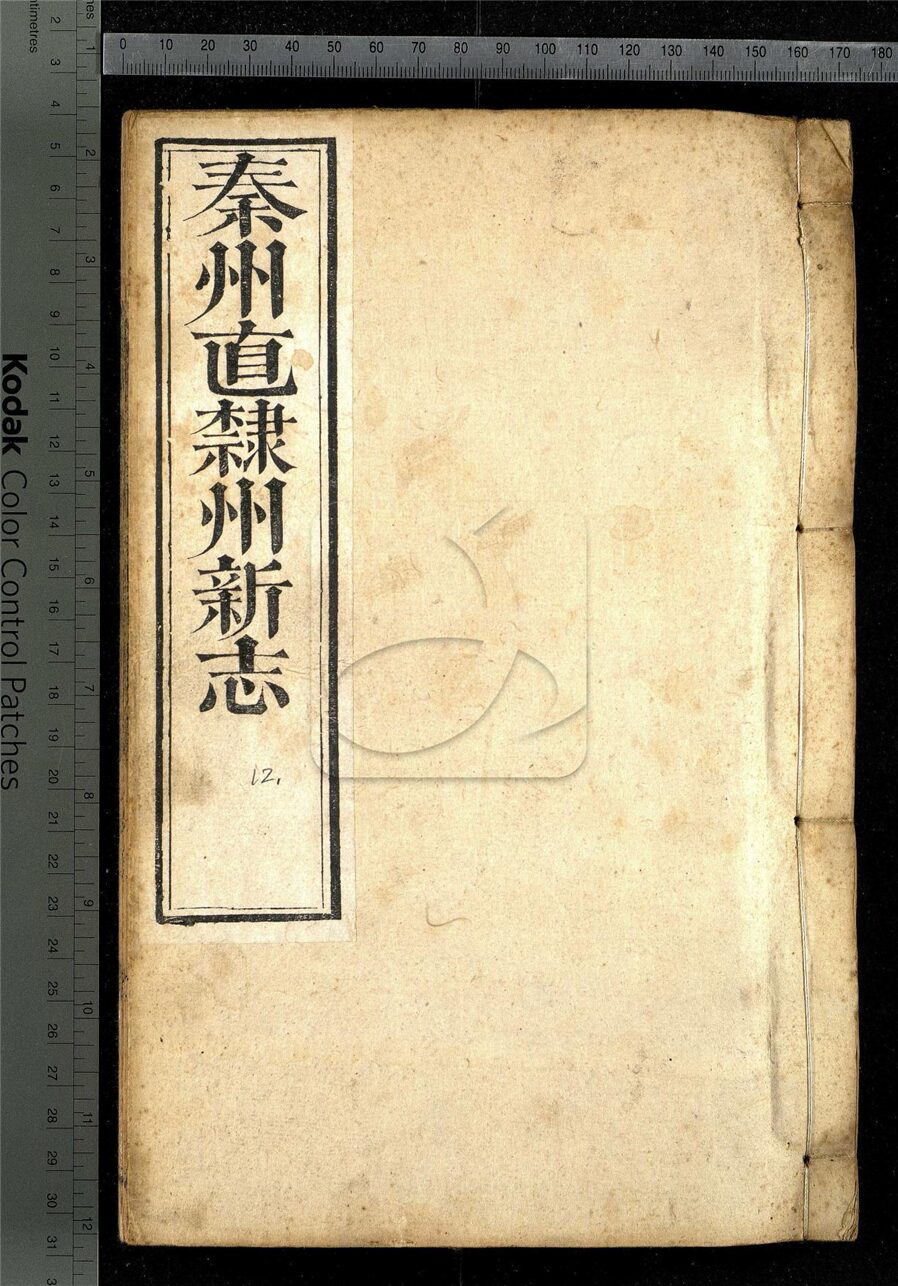 秦州直隸州新志
12.
0 10 20 30 40 50 60 70 80 90 100 110 120 130 140 150 160 170 180
Kodak Color Control Patches
2 3 4 5 6 7 8 9 10 11 12 13 14 15 16 17 18 19 20 21 22 23 24 25 26 27 28 29 30 31
1 2 3 4 5 6 7 8 9 10 11 12